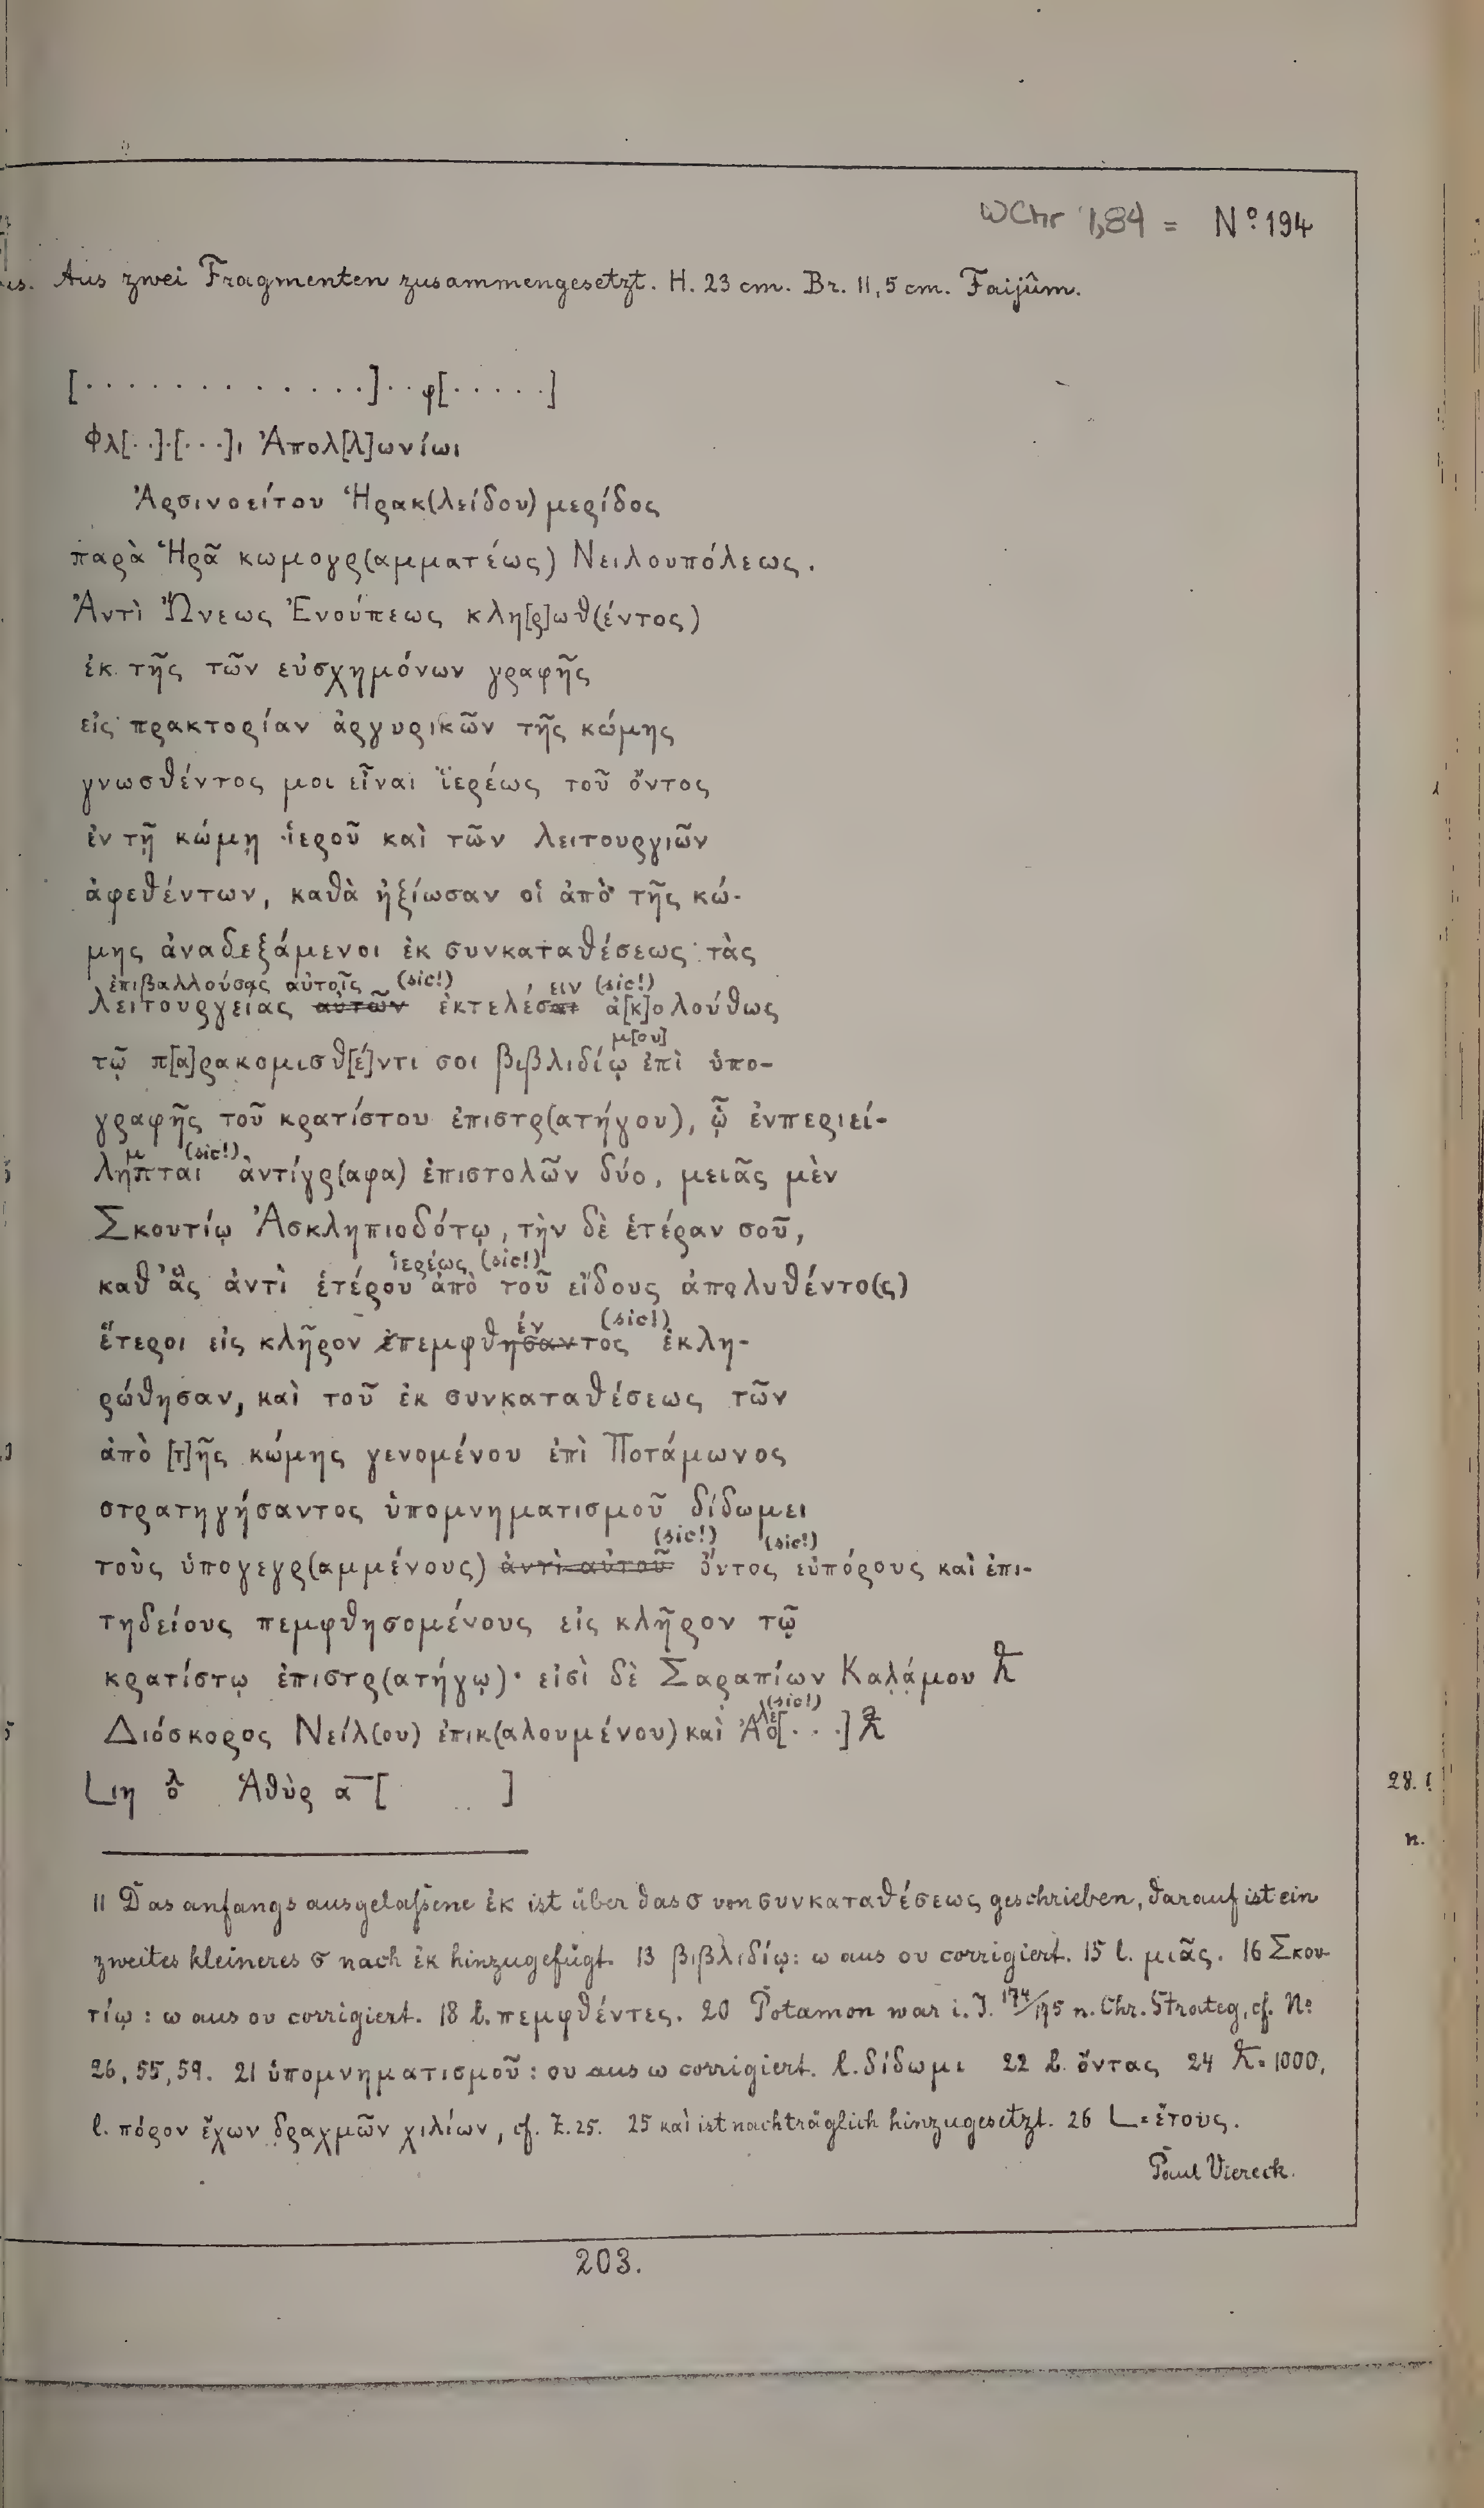 WChr 1,84 = Nº 194
Aus zwei Fragmenten zusammengesetzt. H. 23 cm. Br. 11,5 cm. Faijûm.
[· · · · · · · · · · · · ·]· · φ[· · · · ·]
Φλ[· ·]·[· · ·]ι Ἀπολ[λ]ωνίωι
Ἀρσινοείτου Ἡρακ(λείδου) μερίδος
παρὰ Ἡρᾶ κωμογρ(αμματέως) Νειλουπόλεως.
Ἀντὶ Ὤνεως Ἐνούπεως κλη[ρ]ωθ(έντος)
ἐκ τῆς τῶν εὐσχημόνων γραφῆς
εἰς πρακτορίαν ἀργυρικῶν τῆς κώμης
γνωσθέντος μοι εἶναι ἱερέως τοῦ ὄντος
ἐν τῇ κώμῃ ἱεροῦ καὶ τῶν λειτουργιῶν
ἀφεθέντων, καθὰ ἠξίωσαν οἱ ἀπὸ τῆς κώ-
μης ἀναδεξάμενοι ἐκ συνκαταθέσεως τὰς
ἐπιβαλλούσας αὐτοῖς (sic!) ειν (sic!)
λειτουργείας αὐτῶν ἐκτελέσαι ἀ[κ]ολούθως
μ[ου]
τῷ π[α]ρακομισθ[έ]ντι σοι βιβλιδίῳ ἐπὶ ὑπο-
γραφῆς τοῦ κρατίστου ἐπιστρ(ατήγου), ᾧ ἐνπεριεί-
μ (sic!)
ληπται ἀντίγρ(αφα) ἐπιστολῶν δύο, μειᾶς μὲν
Σκουτίῳ Ἀσκληπιοδότῳ, τὴν δὲ ἑτέραν σοῦ,
ἱερέως (sic!)
καθ' ἃς ἀντὶ ἑτέρου ἀπὸ τοῦ εἴδους ἀπολυθέντο(ς)
έν (sic!)
ἕτεροι εἰς κλῆρον ἐπεμφθησαντος ἐκλη-
ρώθησαν, καὶ τοῦ ἐκ συνκαταθέσεως τῶν
ἀπὸ [τ]ῆς κώμης γενομένου ἐπὶ Ποτάμωνος
στρατηγήσαντος ὑπομνηματισμοῦ δίδωμει
(sic!) (sic!)
τοὺς ὑπογεγρ(αμμένους) ἀντὶ αὐτοῦ ὄντος εὐπόρους καὶ ἐπι-
τηδείους πεμφθησομένους εἰς κλῆρον τῷ
κρατίστῳ ἐπιστρ(ατήγῳ)· εἰσὶ δὲ Σαραπίων Καλάμου
λε (sic!)
Διόσκορος Νείλ(ου) ἐπικ(αλουμένου) καὶ Ἀο[· · ·]
Lιη Ἁθὺρ α [ ]
11 Das anfangs ausgelaſsene ἐκ ist über das σ von συνκαταθέσεως geschrieben, darauf ist ein
zweites kleineres σ nach ἐκ hinzugefügt. 13 βιβλιδίῳ: ω aus ου corrigiert. 15 l. μιᾶς. 16 Σκου-
τίῳ : ω aus ου corrigiert. 18 l. πεμφθέντες. 20 Potamon war i. J. 174/175 n. Chr. Strateg, cf. Nº
26, 55, 59. 21 ὑπομνηματισμοῦ : ου aus ω corrigiert. l. δίδωμι 22 l. ὄντας 24 = 1000,
l. πόρον ἔχων δραχμῶν χιλίων, cf. Z. 25. 25 καὶ ist nachträglich hinzugesetzt. 26 L = ἔτους.
Paul Viereck.
203.
28.
n.